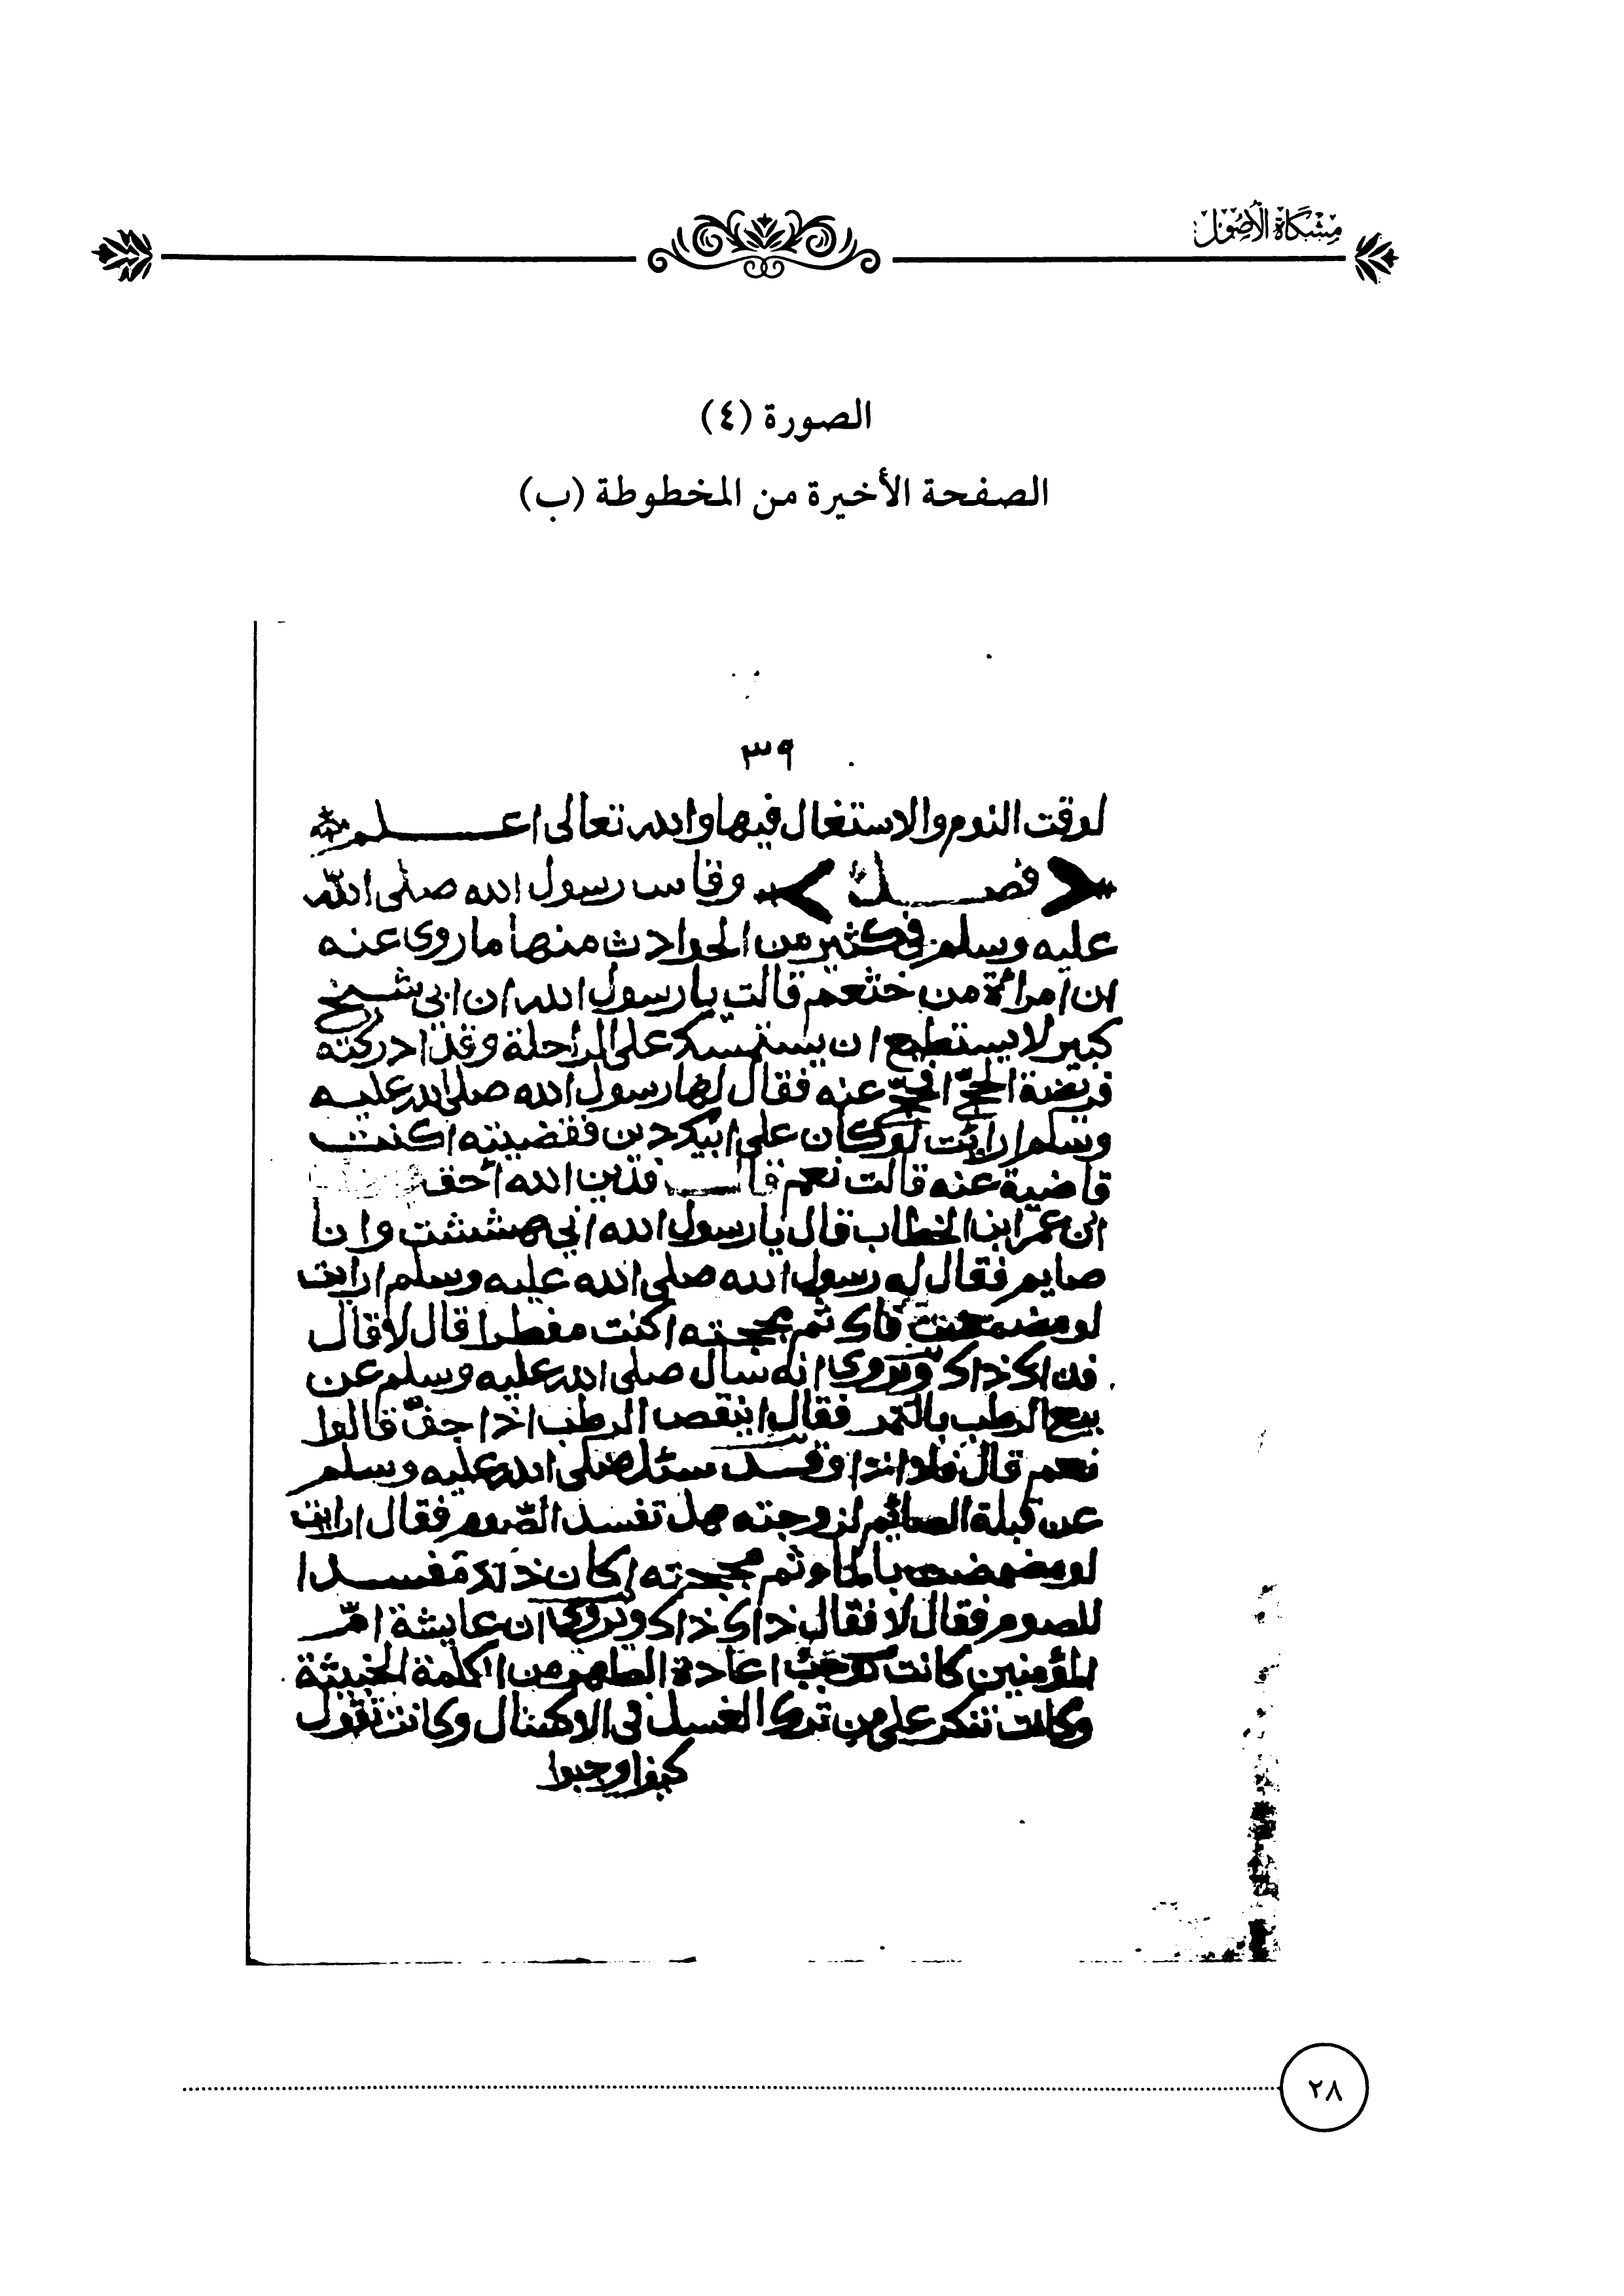 مِشْكَاةُ الْأُصُولِ
الصورة (٤)
الصفحة الأخيرة من المخطوطة (ب)
٣٩
لوقت النوم والاستغال فيها والله تعالى اعلم
فصل وقاس رسول الله صلى الله
عليه وسلم في كثير من الحوادث منها ما روي عنه
ان امرأة من خثعم قالت يا رسول الله ان ابي شيخ
كبير لا يستطيع ان يستمسك على الراحلة وقد ادركته
فريضة الحج افحج عنه فقال لها رسول الله صلى الله عليه
وسلم ارأيت لو كان على ابيك دين فقضيته اكنت
قاضية عنه قالت نعم قال فدين الله أحق
ان عمر ابن الخطاب قال يا رسول الله اني هششت وانا
صايم فقال له رسول الله صلى الله عليه وسلم ارايت
لو ثم مججته اكنت مفطرا قال لا قال
ذاك ويروى انه سأل صلى الله عليه وسلم عن
بيع الرطب بالتمر فقال اينقص الرطب اذا جف قالوا
نعم قال فلا اذا وقد سئل صلى الله عليه وسلم
عن قبلة الصائم لزوجته هل تفسد الصوم فقال ارايت
لو مضمضت بالماء ثم مججته اكان ذلك مفسدا
للصوم فقال لا فقال ذاك ذاك ويروى ان عايشة ام
المؤمنين كانت اعادة الطهر من الكلمة الخبيثة
وكانت تنكر على من ترك الغسل في الاكسال وكانت تقول
كيف اوجبوا
٢٨